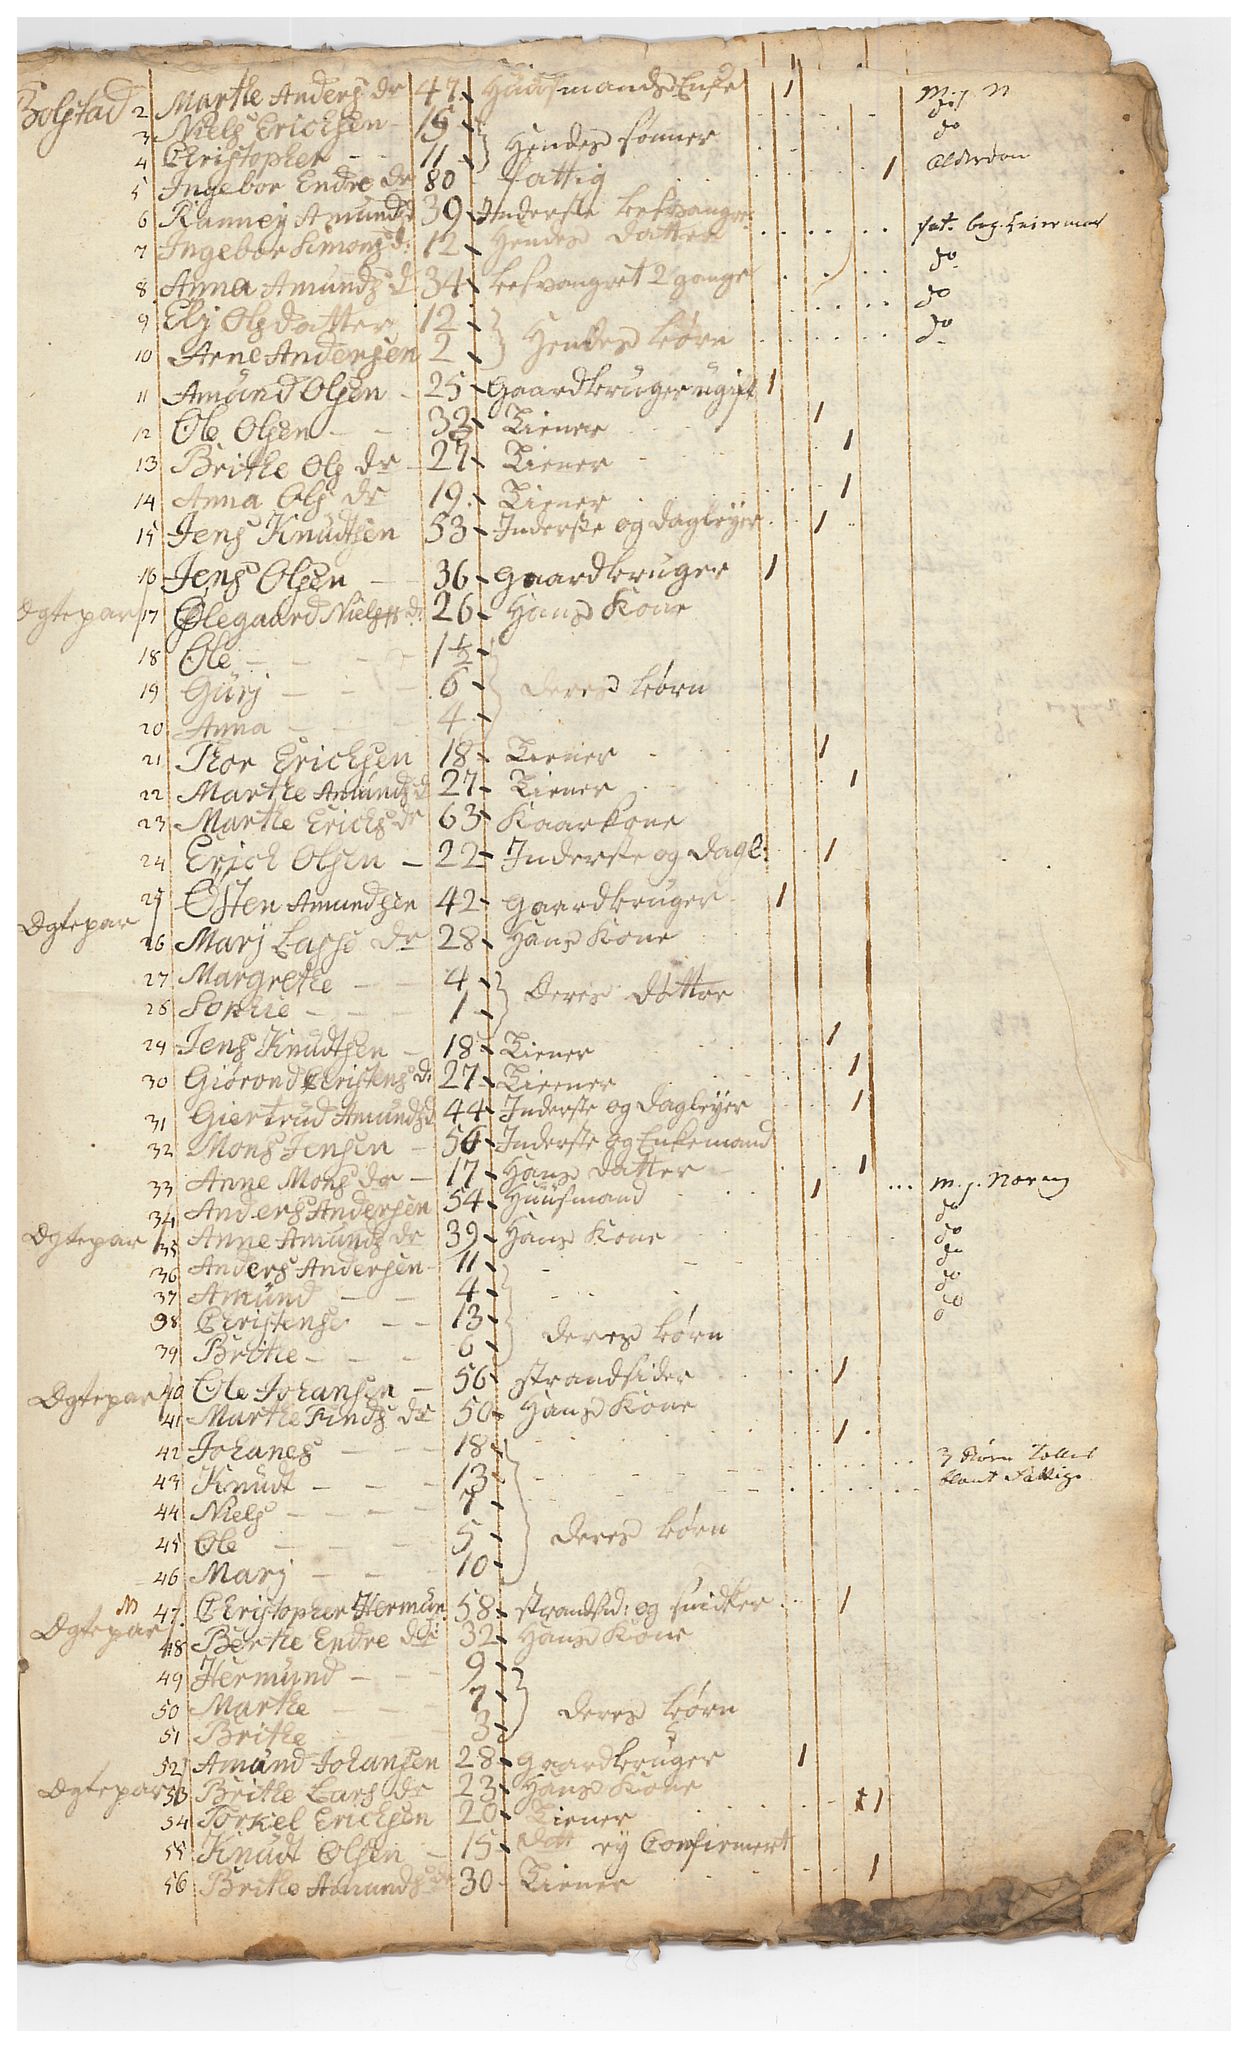 Bolstad 2 Marthe Anders dr 47 Huusmands Enke 1 M. j. N
3 Niels Erichsen - 15 do
4 Christopher - - 11 } Hendes sønner do
5 Ingebor Endre dr 80 fattig 1 Alderdom
6 Ranney Amunds d 39 Inderste besvangret
7 Ingebor Simons d: 12 Hendes datter fat.
8 Anna Amunds d 34 besvangret 2 gange do
9 Elj Ols datter 12 do
10 Arne Andersen 2 } Hendes børn do
11 Amund Olsen - 25 Gaardbruger ugift 1
12 Ole Olsen - - 32 Tiener 1
13 Brithe Ols dr 27 Tiener 1
14 Anna Ols dr 19 Tiener 1
15 Jens Knudtsen 53 Inderste og dagleyer 1
16 Jens Olsen - - 36 Gaardbruger 1
Ægtepar 17 Ølegaard Niels d: 26 Hans Kone
18 Ole - - - 1½
19 Gurj - - - 6 } deres børn
20 Anna - - - 4
21 Thor Erichsen 18 Tiener 1
22 Marthe Amunds d 27 Tiener 1
23 Marthe Erichs dr 63 Kaarkone
24 Erich Olsen - 22 Inderste og dagl: 1
25 Østen Amundsen 42 gaardbruger 1
Ægtepar 26 Marj Lasse dr 28 Hans Kone
27 Margrethe - - 4 } Deres døttre
28 Sophie - - - 1
29 Jens Knudtsen - 18 Tiener 1
30 Giørond Christens d: 27 Tieener 1
31 Giertrud Amunds d 44 Inderste og dagleyer 1
32 Mons Jensen - 56 Inderste og Enkemand
33 Anne Mons dr - 17 Hans datter 1
34 Anders Andersen 54 Huusmand 1 M. j. Noreng
Ægtepar 35 Anne Amunds dr 39 Hans Kone do
36 Anders Andersen - 11 do
37 Amund - - 4 do
38 Christense - - 13 do
39 Brithe - - - 6 } deres børn do
Ægtepar 40 Ole Johansen - 56 strandsider 1
41 Marthe Finds dr 50 Hans Kone
42 Johanes - - - 18 1
43 Knudt - - - 13 3 Børn
44 Niels - - - 7 blant Fattige
45 Ole - - - 5 } deres børn
46 Marj - - - 10
47 Christopher Hermun 58 strandsid: og snidker 1
Ægtepar 48 Berthe Endre dr 32 Hans Kone
49 Hermund - - 9
50 Marthe - - 7 } deres børn
51 Brithe - - 3
52 Amund Johansen 28 gaardbruger 1
Ægtepar 53 Brithe Lars dr 23 Hans Kone
54 Torkel Erichsen 20 Tiener 1
55 Knudt Olsen - 15 dito ej Confirmert
56 Brithe Amunds dr 30 Tiener 1